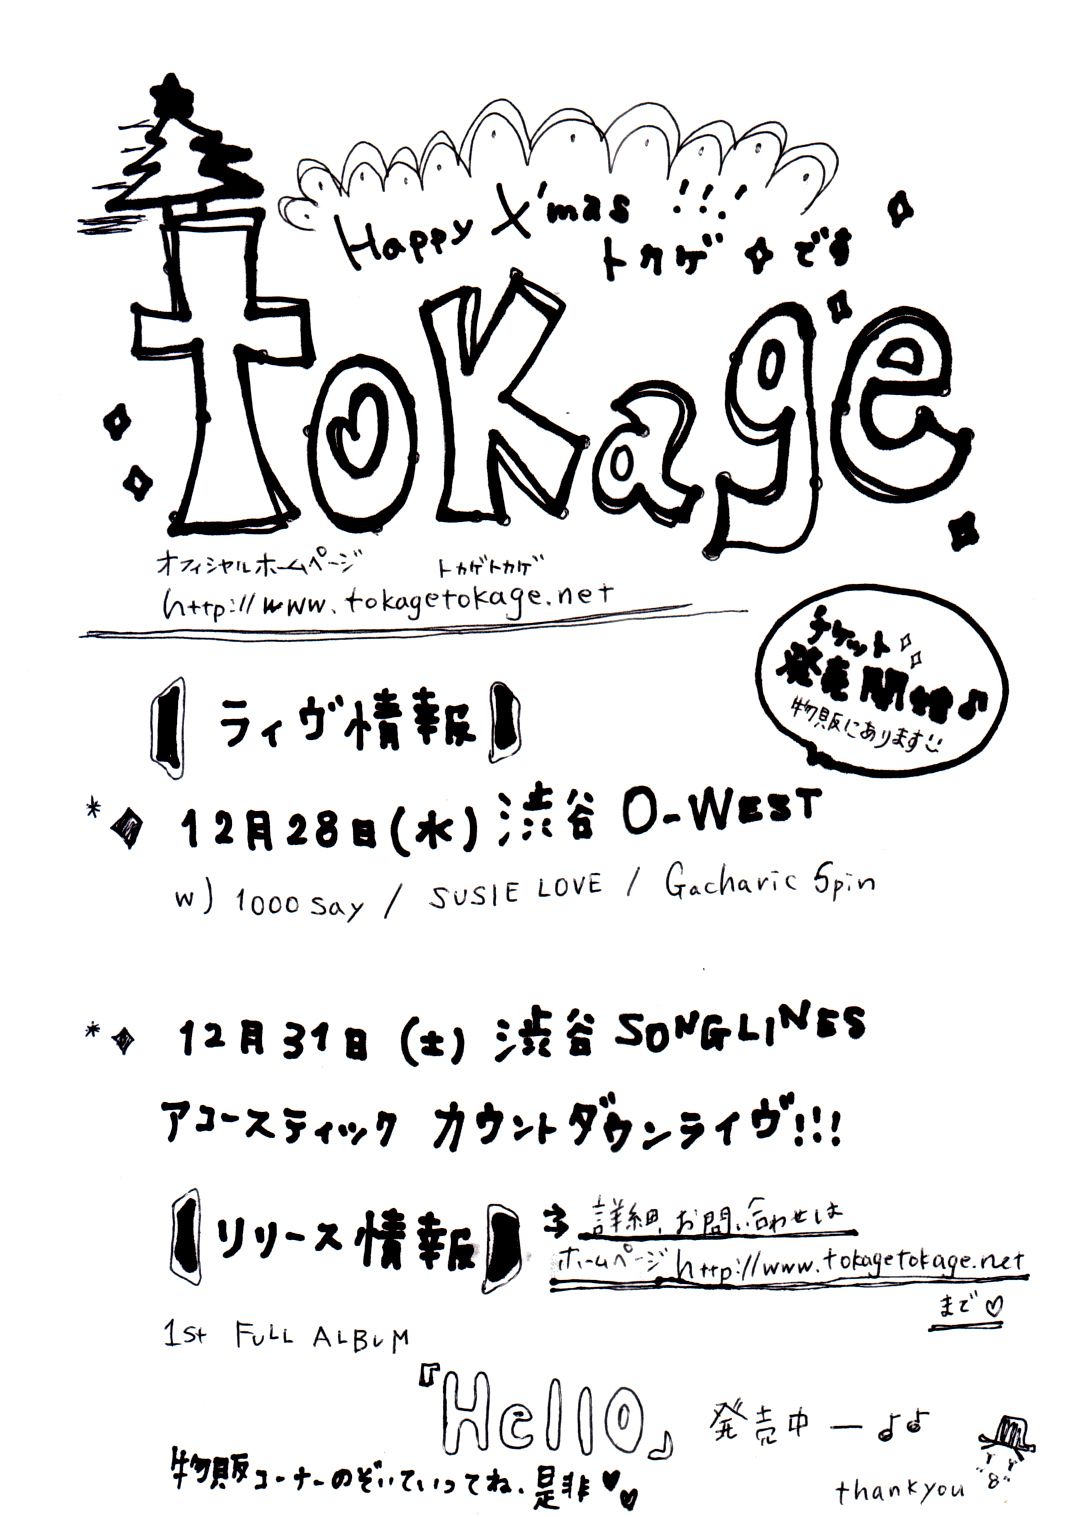 Happy X'mas !!!
トカゲです
toKage
オフィシャルホームページ トカゲトカゲ
http://www.tokagetokage.net
チケット
発売開始♪
物販にあります
【ライヴ情報】
* ◆ 12月28日(水) 渋谷 O-WEST
w) 1000 say / SUSIE LOVE / Gacharic Spin
* ◆ 12月31日(土) 渋谷 SONGLINES
アコースティック カウントダウンライヴ!!!
【リリース情報】
⇒ 詳細、お問い合わせは
ホームページ http://www.tokagetokage.net
まで♡
1st FULL ALBUM
『Hello』 発売中ー♪♪
物販コーナーのぞいていってね、是非♥♥
thankyou